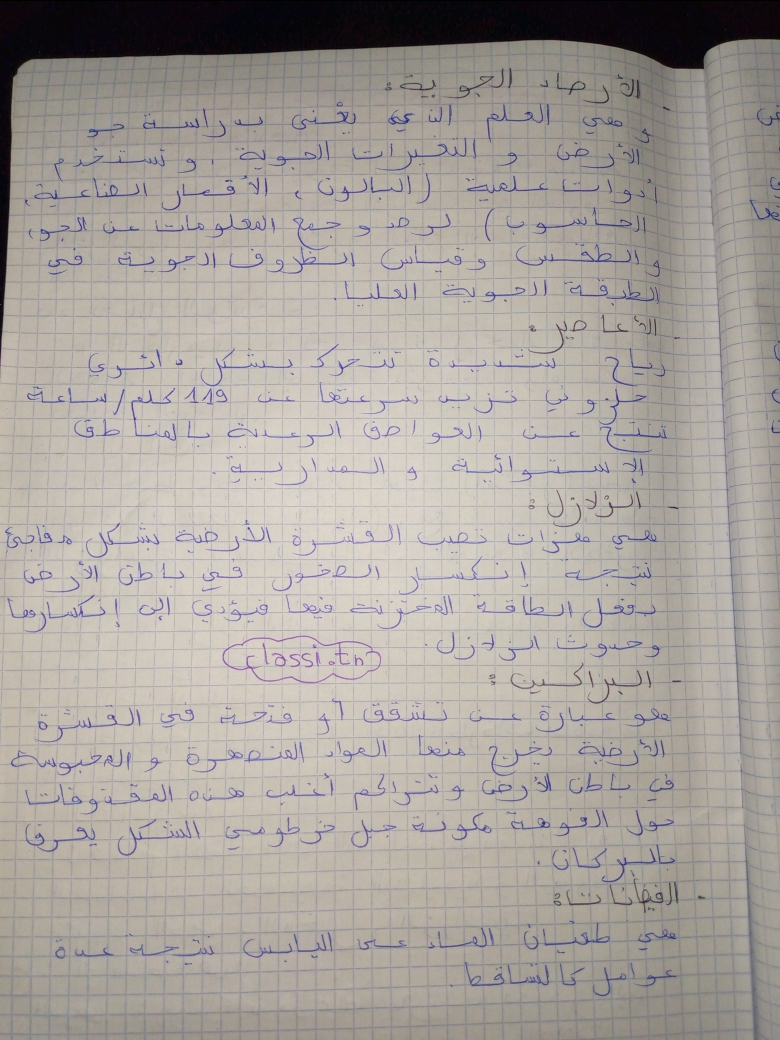 - الأرصاد الجوية:
و هي العلم الذي يُعْنى بدراسة جو
الأرض و التغيرات الجوية، و تستخدم
أدوات علمية (البالون، الأقمار الصناعية،
الحاسوب) لرصد و جمع المعلومات عن الجو،
و الطقس و قياس الظروف الجوية في
الطبقة الجوية العليا.
- الأعاصير:
رياح شديدة تتحرك بشكل دائري
حلزوني تزيد سرعتها عن 119 كلم/ساعة
تنتج عن العواصف الرعدية بالمناطق
الإستوائية و المدارية.
- الزلازل:
هي هزات تصيب القشرة الأرضية بشكل مفاجئ
نتيجة إنكسار الصخور في باطن الأرض
بفعل الطاقة المختزنة فيها فيؤدي إلى إنكسارها
وحدوث الزلازل.
classi.tn
- البراكين:
هو عبارة عن تشقق أو فتحة في القشرة
الأرضية يخرج منها المواد المنصهرة و المحبوسة
في باطن الأرض و تتراكم أغلب هذه المقذوفات
حول الفوهة مكونة جبل خرطومي الشكل يعرف
بالبركان.
- الفيضانات:
هي طغيان الماء على اليابس نتيجة عدة
عوامل كالتساقط.